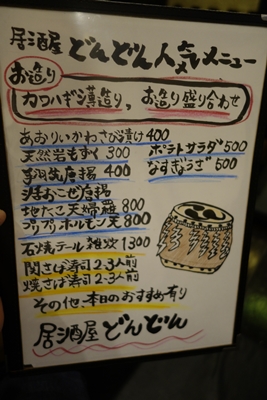 居酒屋 どんどん人気メニュー
お造り
カワハギ薄造り、お造り盛り合わせ
あおりいかわさび漬け400
天然岩もずく 300
手羽先唐揚 400
活おこぜ唐揚
地だこ天婦羅 800
プリプリホルモン天 800
石焼テール雑炊 1300
関さば寿司 2-3人前
焼さば寿司 2-3人前
その他、本日のおすすめ有り
ポテトサラダ 500
なすぎょうざ 500
居酒屋 どんどん